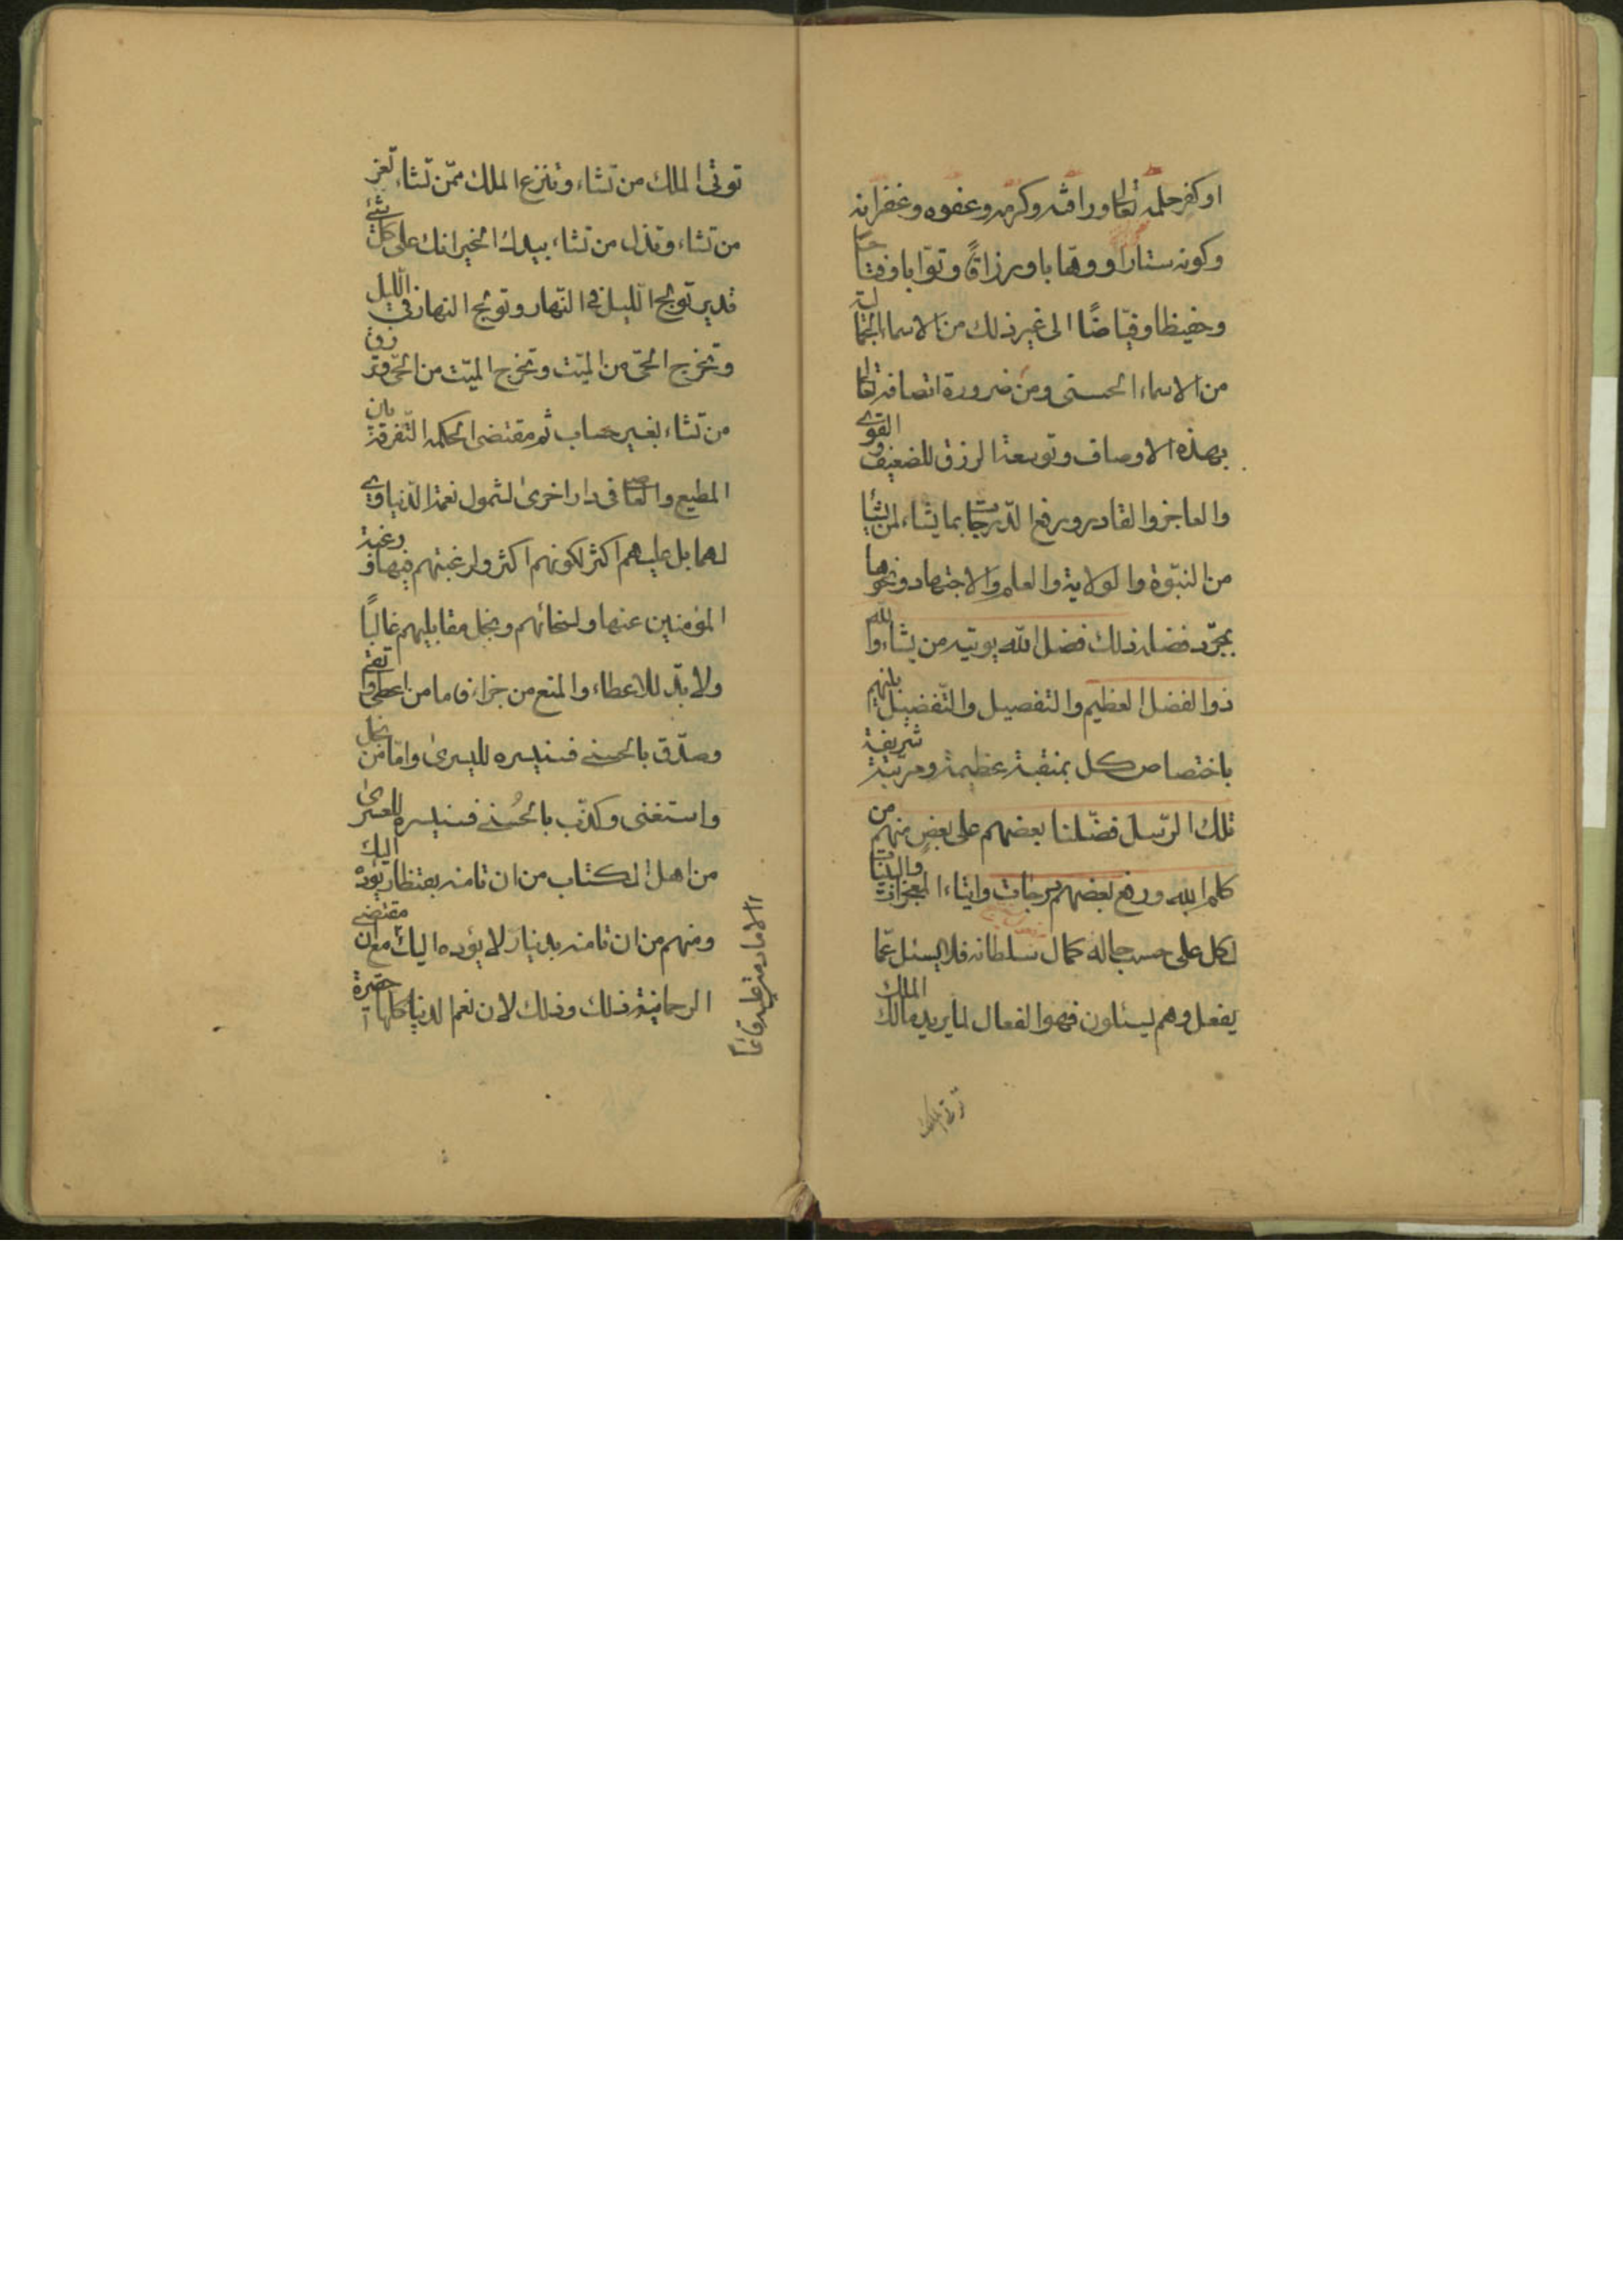 او كفر حلمه تعالى ورافته وكرمه وعفوه وغفرانه
وكونه ستارا ووهابا ورزاقًا وتوّابا وفتاحا
وحفيظا وفيّاضًا الى غير ذلك من الاسماء الجمالية
من الاسماء الحسنى ومن ضرورة اتصافه تعالى
بهذه الاوصاف وتوسعة الرزق للضعيف والقوي
والعاجز والقادر ورفع الدّرجات بما يشاء لمن يشاء
من النبّوة والولاية والعلم والاجتهاد ونحوها
بمجرّد فضله ذلك فضل اللّه يوتيه من يشاء واللّه
ذوا لفضل العظيم والتفصيل والتّفضيل بينهم
باختصاص كل بمنقبة عظيمة ومرتبة شريفة
تلك الرّسل فضّلنا بعضهم على بعضٍ منهم من
كلم الله ورفع بعضهم درجات وايتاء المعجزات والبينات
لكل على حسب حاله كمال سلطانه فلا يسئل عمّا
يفعل وهم يسئلون فهو الفعال لما يريد مالك الملك
توتى الملك
توتى الملك من تشاء وتنزع الملك ممّن تشاء تعز
من تشاء وتذل من تشاء بيدك الخير انك على كل شئ
قدير تولج اللّيل في النّهار وتولج النهار في اللّيل
وتخرج الحيّ من الميّت وتخرج الميّت من الحيّ وترزق
من تشاء بغير حساب ثم مقتضى الحكمة التّفرقة بين
المطيع والعاصي فى دار اخرى لشمول نعمة الدّنيا
لهما بل عليهم اكثر لكونهم اكثر ولرغبتهم فيها ورغبة
المؤمنين عنها ولسخائهم وبخل مقابليهم غالبًا
ولا بدّ للاعطاء والمنع من جزاء فاما من اعطى واتقى
وصدّق بالحسنى فسنيسره لليسرى وامّا من بخل
واستغنى وكذّب بالحُسنى فسنيسره للعسرى
من اهل الكتاب من ان تامنه بقنطار يؤده اليك
ومنهم من ان تامنه بدينار لا يؤده اليك مع ان مقتضى
الرحمانية ذلك وذلك لان نعم الدنيا كلها حقيرة
الا ما دمت عليه قائمًا